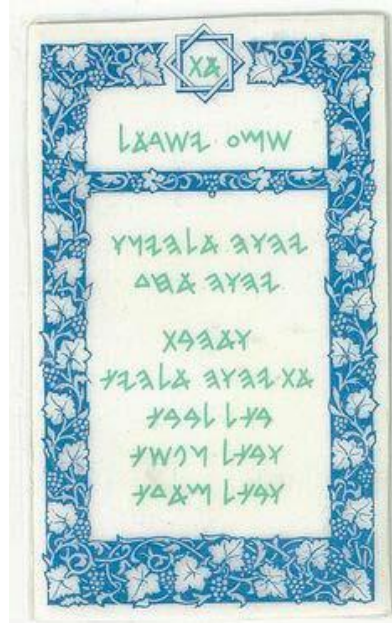 𐤀𐤕
𐤔𐤌𐤏 𐤉𐤔𐤓𐤀𐤋
𐤉𐤄𐤅𐤄 𐤀𐤋𐤄𐤉𐤍𐤅
𐤉𐤄𐤅𐤄 𐤀𐤇𐤃
𐤅𐤀𐤄𐤁𐤕
𐤀𐤕 𐤉𐤄𐤅𐤄 𐤀𐤋𐤄𐤉𐤊
𐤁𐤊𐤋 𐤋𐤁𐤁𐤊
𐤅𐤁𐤊𐤋 𐤍𐤐𐤔𐤊
𐤅𐤁𐤊𐤋 𐤌𐤀𐤃𐤊